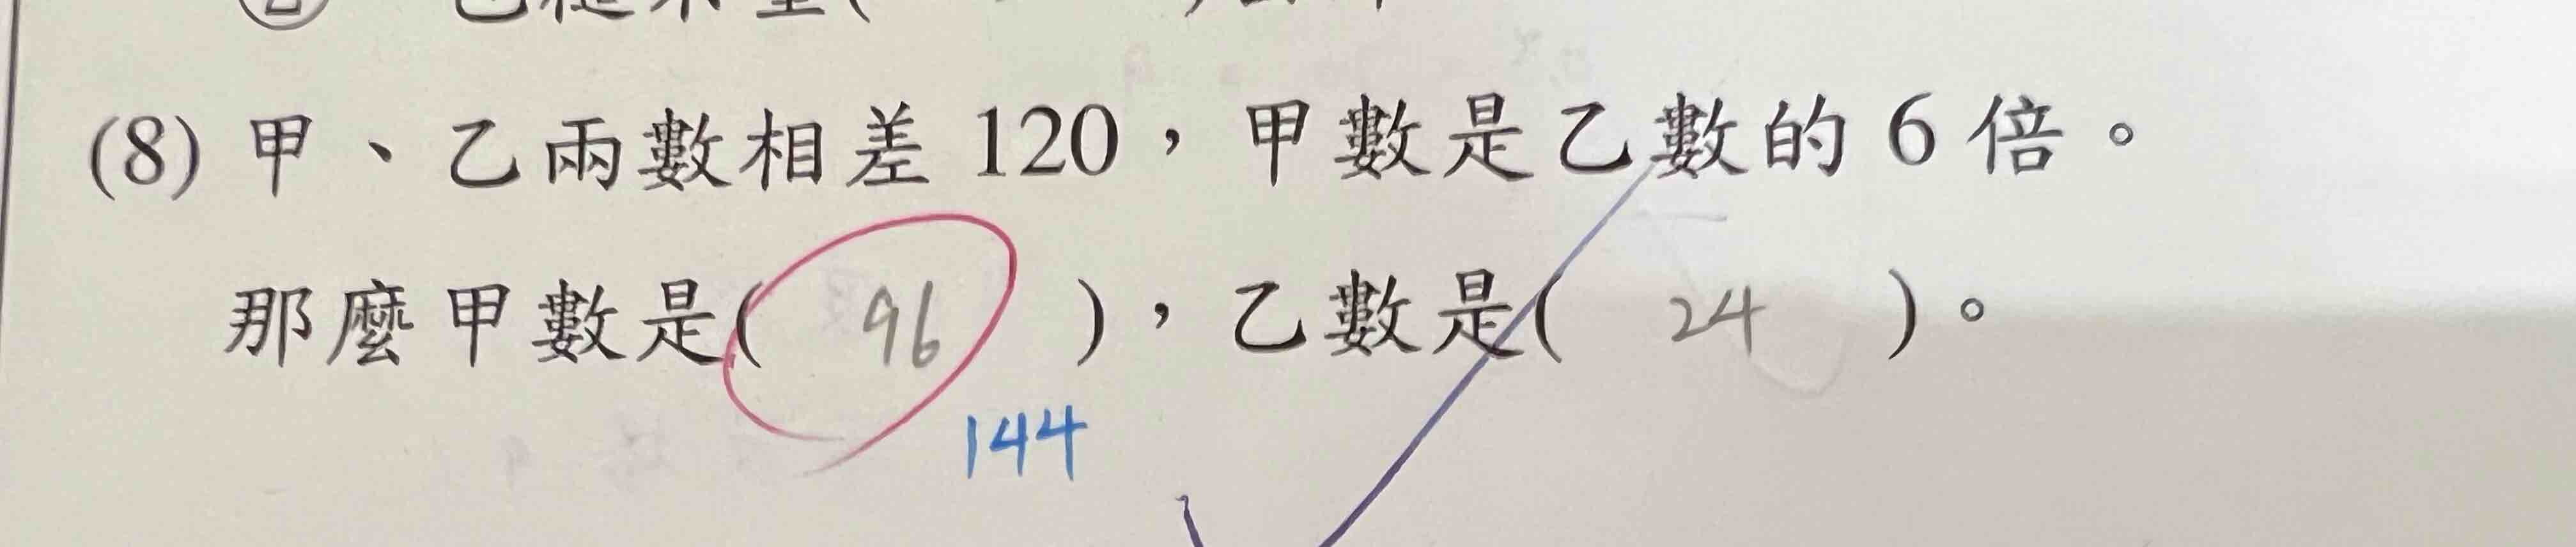 (8) 甲、乙兩數相差 120，甲數是乙數的 6 倍。
那麼甲數是( 96 )，乙數是( 24 )。
144